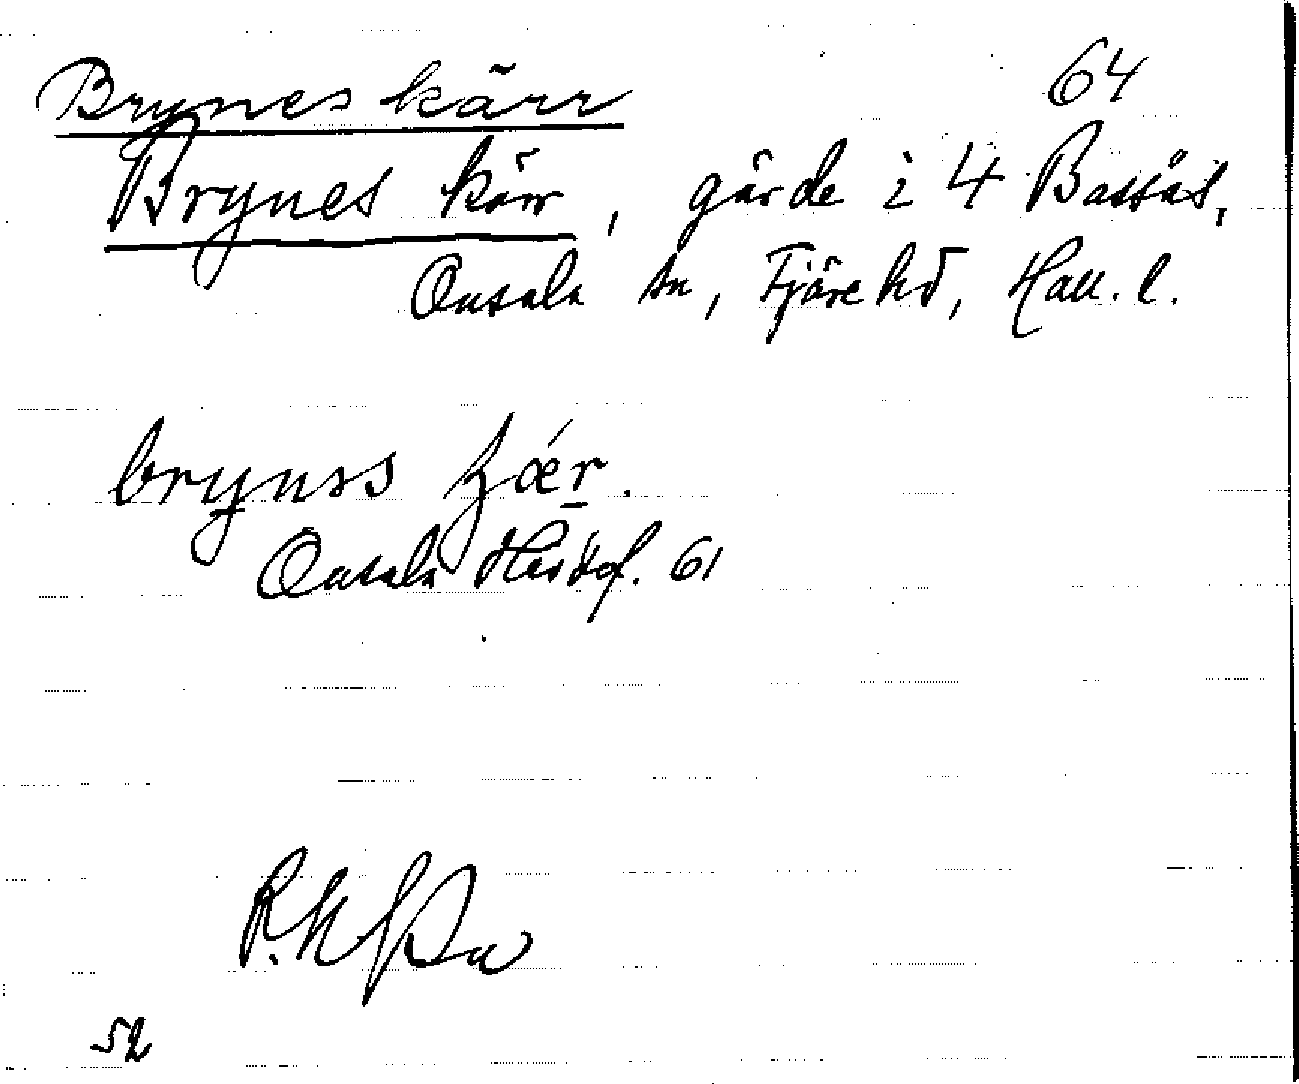 Brynes kärr
64
Brynes kärr, gärde i 4 Bassås,
Onsala sn, Fjäre hd, Hall. l.
brynss
Onsala 61
52